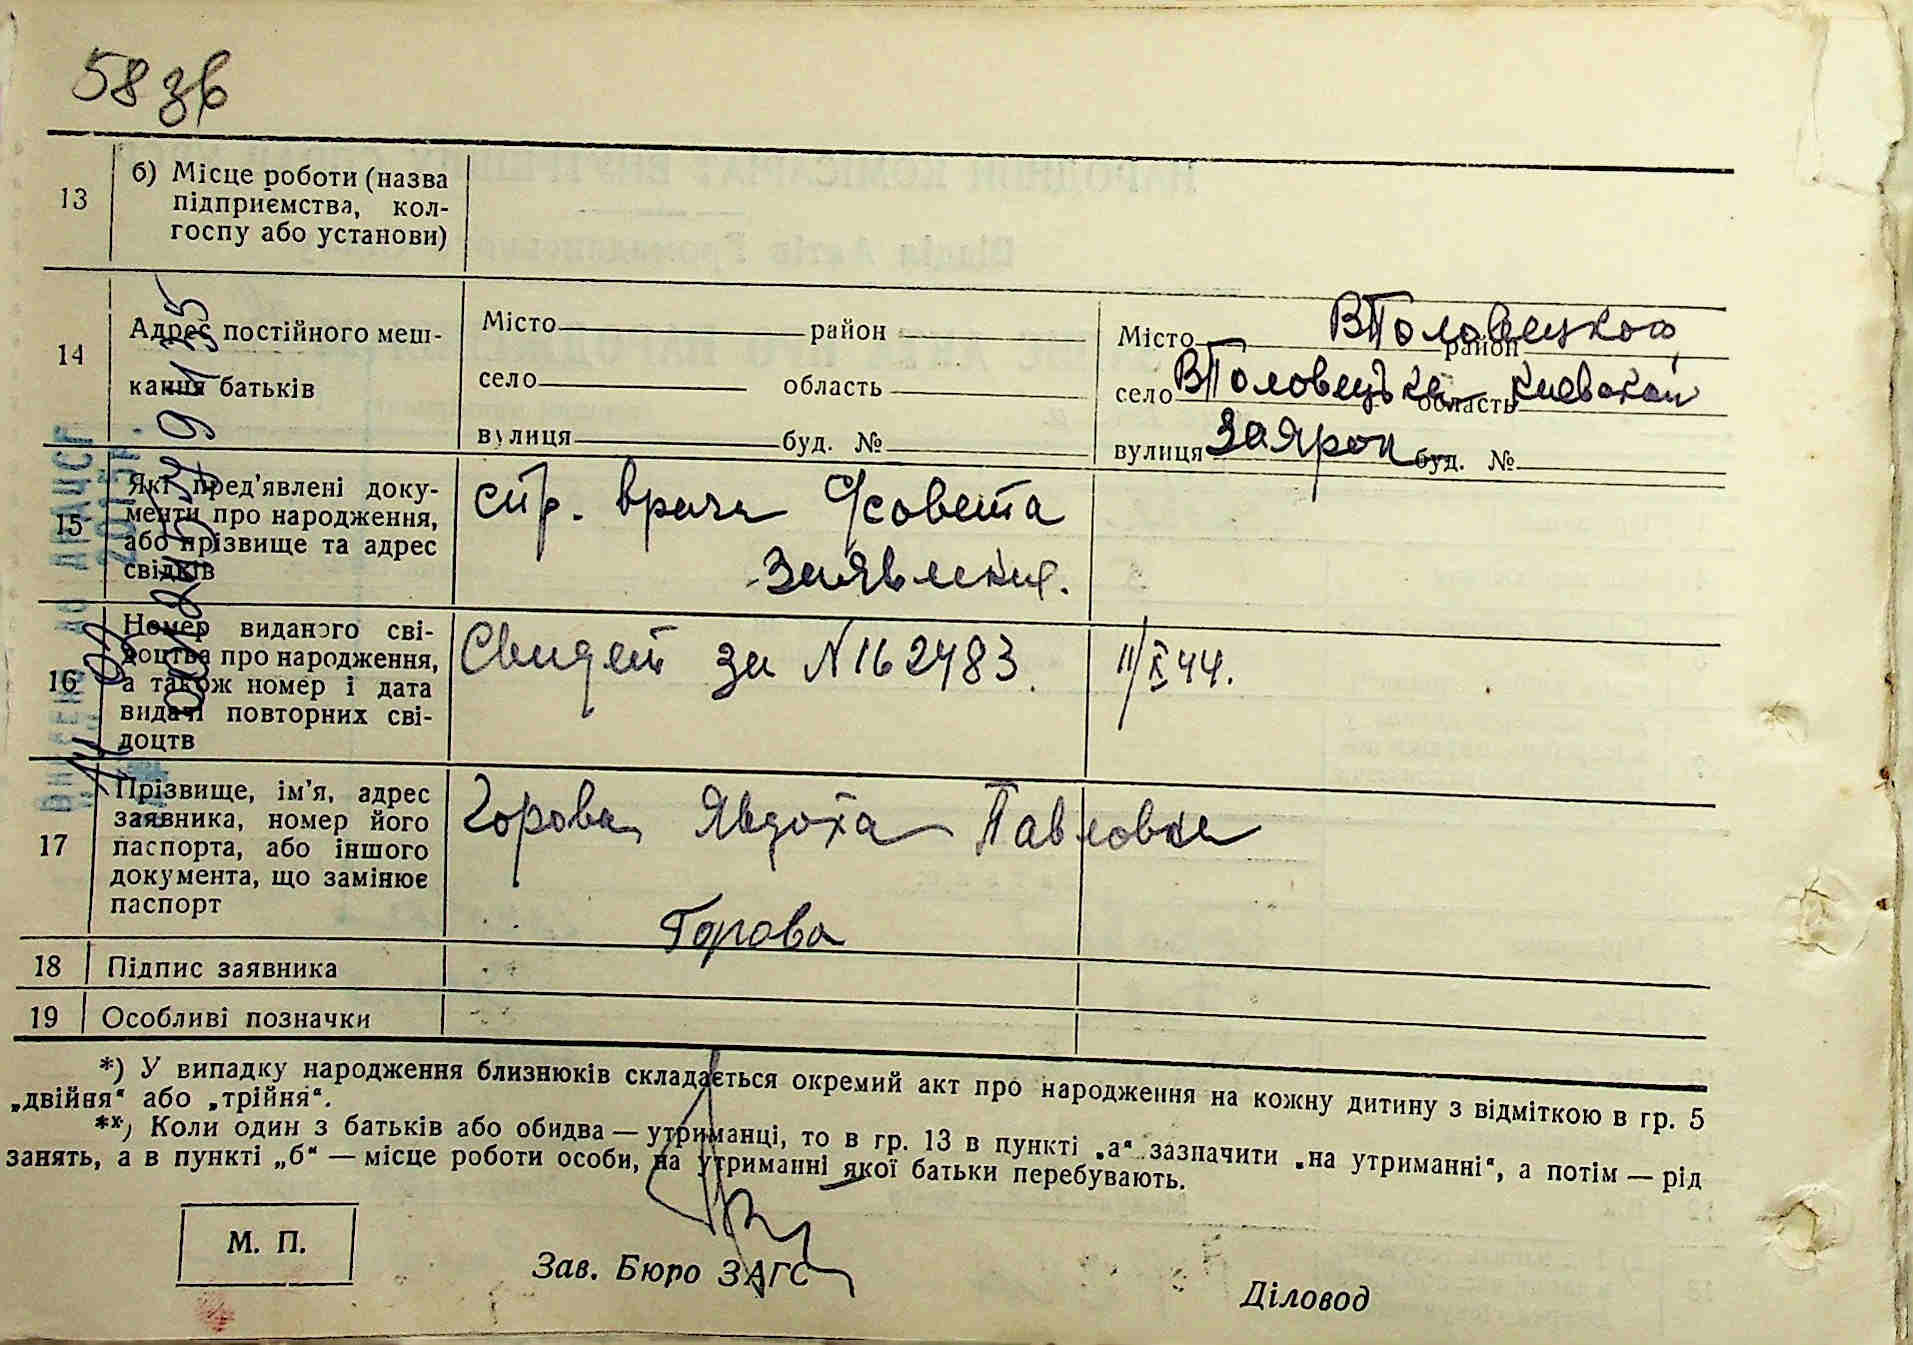 58 зв
13
б) Місце роботи (назва
підприємства, кол-
госпу або установи)
14
Адрес постійного меш-
кання батьків
Місто район
село область
вулиця буд. №
Місто ВПоловецкого район
село ВПоловецька область Киевской
вулиця Заяром буд. №
15
Які пред'явлені доку-
менти про народження,
або прізвище та адрес
свідків
спр. врача
заявления.
16
Номер виданого сві-
доцтва про народження,
а також номер і дата
видачі повторних сві-
доцтв
Свидет за N 162483.
11/X 44.
17
Прізвище, ім'я, адрес
заявника, номер його
паспорта, або іншого
документа, що замінює
паспорт
Горова Явдоха Павловна
Горова
18 Підпис заявника
19 Особливі позначки
*) У випадку народження близнюків складається окремий акт про народження на кожну дитину з відміткою в гр. 5
„двійня“ або „трійня“.
**) Коли один з батьків або обидва — утриманці, то в гр. 13 в пункті „а“ зазначити „на утриманні“, а потім — рід
занять, а в пункті „б“ — місце роботи особи, на утриманні якої батьки перебувають.
М. П.
Зав. Бюро ЗАГС
Діловод